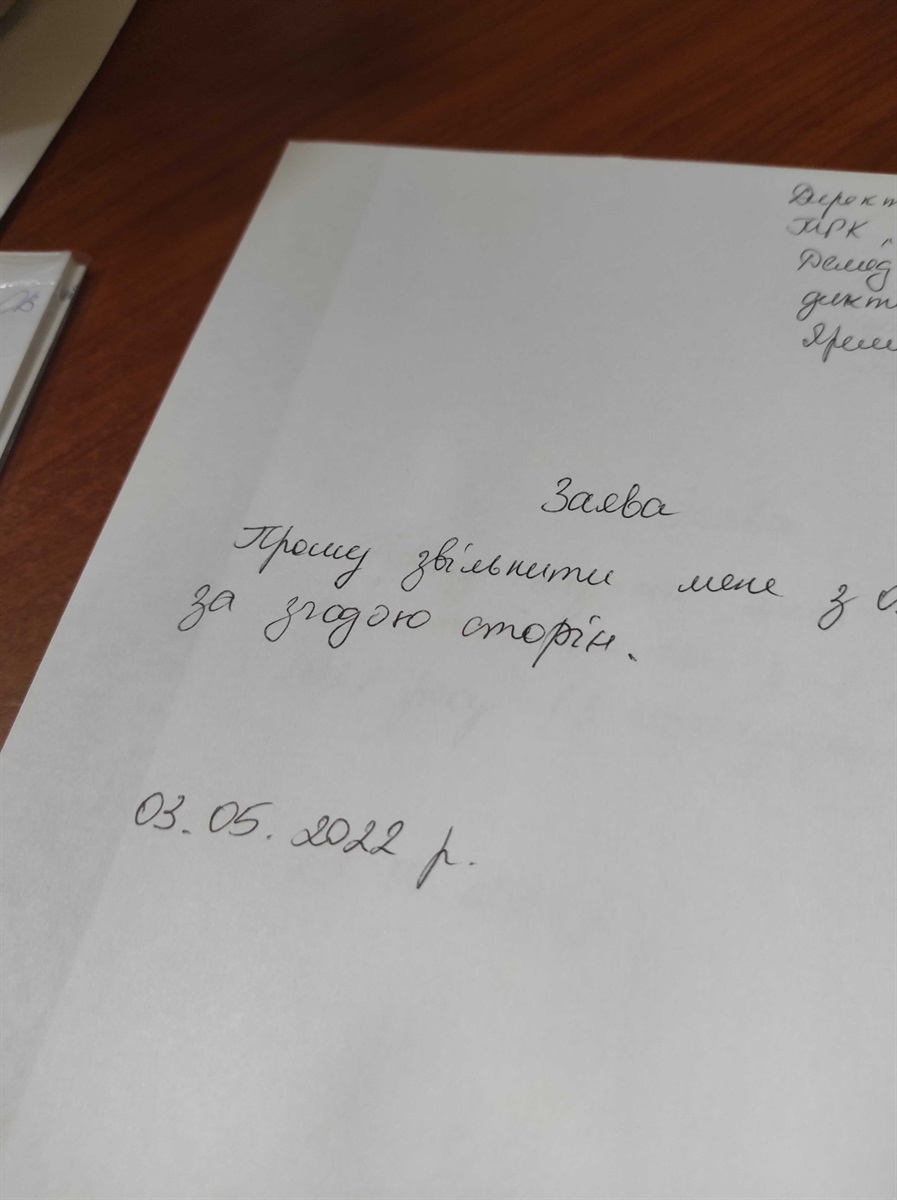 Директ
ТРК „
Демод
дикт
Яреме
Заява
Прошу звільнити мене з 0
за згодою сторін.
03.05.2022 р.